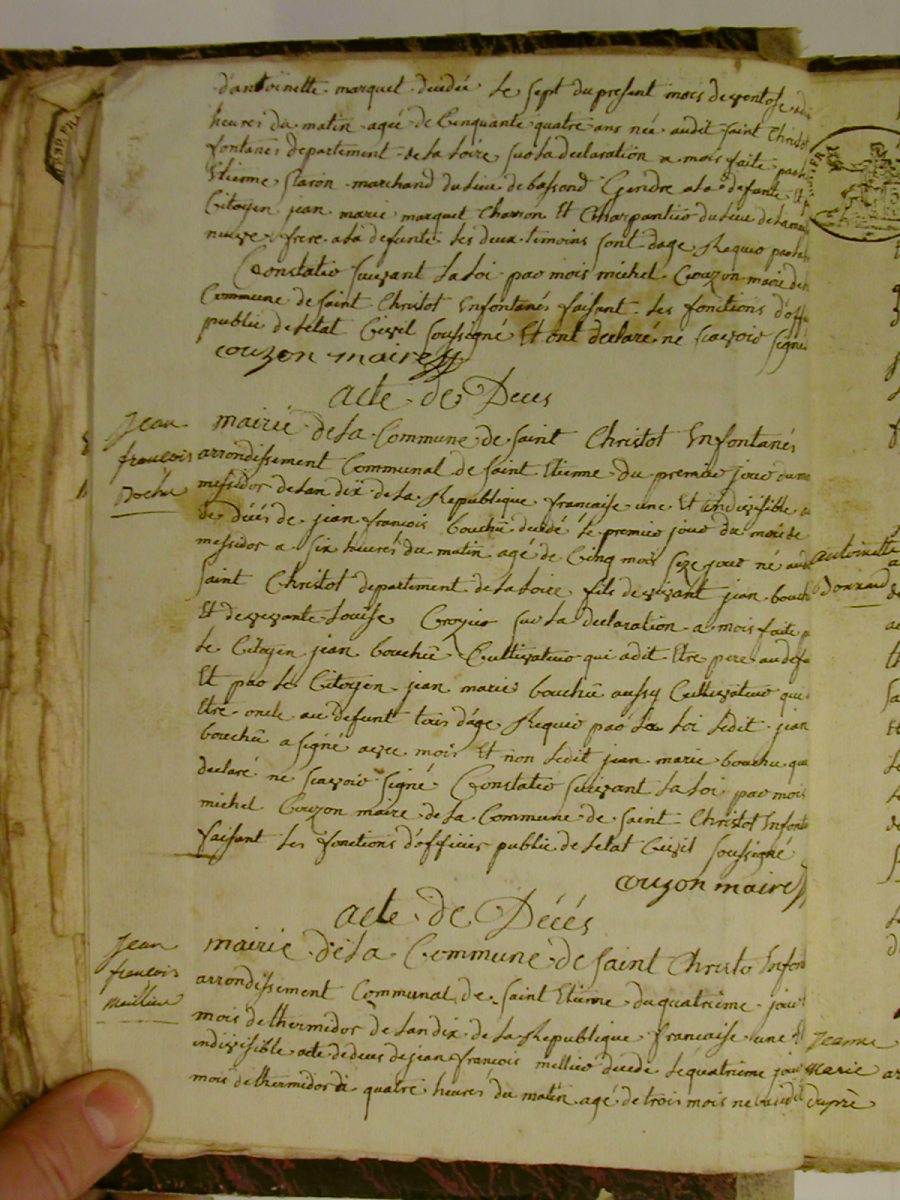 d'antoinette marquet decedée le sept du present mois de ventose
heures du matin agée de Cinquante quatre ans née audit Saint Christot
fontanés departement de la Loire sur la declaration a mois faite par
Etienne marchand du lieu de bassond Gendre a la defunte Et
Citoyen jean marie marquet Charron Et Charpantier du lieu de
neuve frere a la defunte les deux temoins sont dage Requis par
Constatio suivant la Loi par mois michel Couzon maire de
Commune de Saint Christot Enfontanés faisant les fonctions d'off
public de letat Civil soussigné Et ont declaré ne scavoir signé
couzon maire
acte de Deces
Jean
françois
mairié de la Commune de Saint Christot Enfontanés
arrondissement Communal de Saint Etienne du premier jour du
messidor de lan dix de la Republique francaise une Et indivisible
de décés de jean françois bouchu decedé le premier jour du mois de
messidor a six heurés du matin agé de Cinq mois seze jour né
Saint Christot departement de la Loire fils de vivant jean bouch
Et de vivante Louise sur la declaration a mois faite
le Citoyen jean bouchu Cultivateur qui a dit Etre pere au def
Et par le Citoyen jean marie bouchu aussy Cultivateur qui
Etre oncle au defunt tous d'age Requis par la Loi ledit jean
bouchu a signé avec mois Et non ledit jean marie bouchu qui
declaré ne scavoir signé Constatio suivant la Loi par mois
michel Couzon maire de la Commune de Saint Christot Enfont
faisant les fonctions d'officier public de letat Civil soussigné
couzon maire
acte de Décés
Jean
françois
mairie de la Commune de Saint Christo Enfon
arrondissement Communal de Saint Etienne du quatrieme jour
mois de thermidor de lan dix de la Republique francaise une Et
indivisible acte de deces de jean françois decedé le quatrieme jour
mois de thermidor a quatre heures du matin agé de trois mois né
antoinette
Jeanne
Marie
dupré